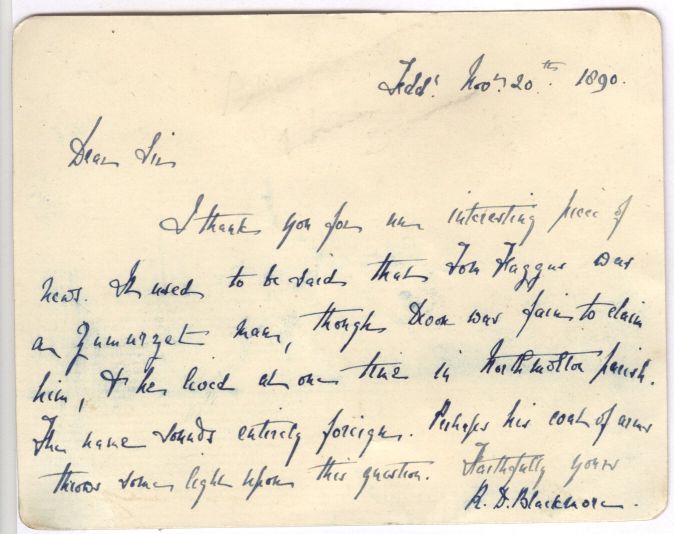 Tedd: Nov: 20th 1890.
Dear Sir
I thank you for an interesting piece of
news. It used to be said that Tom Faggus was
a Zumurzet man, though Devon was fain to claim
him, & he lived at one time in Northmolton parish.
The name sounds entirely foreign. Perhaps his coat of arms
throws some light upon this question. Faithfully yours
R. D. Blackmore